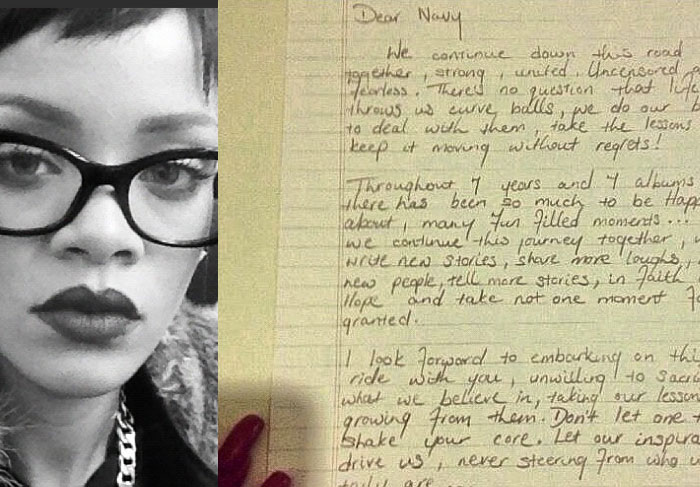 Dear Navy
We continue down this road
together, strong, united. Uncensored
fearless. There's no question that life
throws us curve balls, we do our
to deal with them, take the lessons
keep it moving without regrets!
Throughout 7 years and 7 albums
there has been so much to be Happ
about, many fun filled moments...
we continue this journey together,
write new stories, share more laughs,
new people, tell more stories, in Faith
Hope and take not one moment
granted.
I look forward to embarking on thi
ride with you, unwilling to Sacri
what we believe in, taking our lesson
growing from them. Don't let one
shake your core. Let our inspira
drive us, never steering from who
truly are